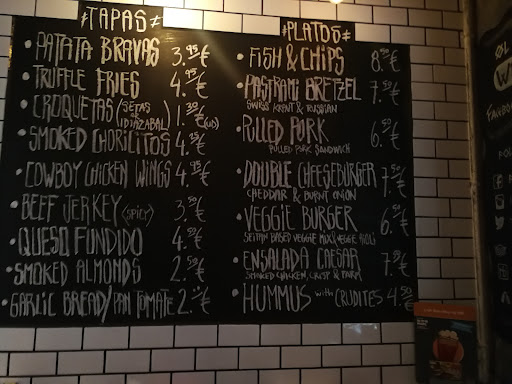 TAPAS
PATATA BRAVAS 3.95€
TRUFFLE FRIES 4.95€
CROQUETAS (SETAS OR IDIAZABAL) 1.30€ (UD)
SMOKED CHORICITOS 4.95€
COWBOY CHICKEN WINGS 4.95€
BEEF JERKEY (SPICY) 3.50€
QUESO FUNDIDO 4.50€
SMOKED ALMONDS 2.50€
GARLIC BREAD/PAN TOMATE 2.€
PLATOS
FISH & CHIPS 8.50€
PASTRAMI BRETZEL 7.50€
SWISS, KRAUT & RUSSIAN
PULLED PORK 6.50€
PULLED PORK SANDWICH
DOUBLE CHEESEBURGER 7.50€
CHEDDAR & BURNT ONION
VEGGIE BURGER 6.50€
SEITAN BASED VEGGIE MIX, VEGGIE AIOLI
ENSALADA CAESAR 7.50€
SMOKED CHICKEN, CRISP & PARM
HUMMUS WITH CRUDITES 4.50€